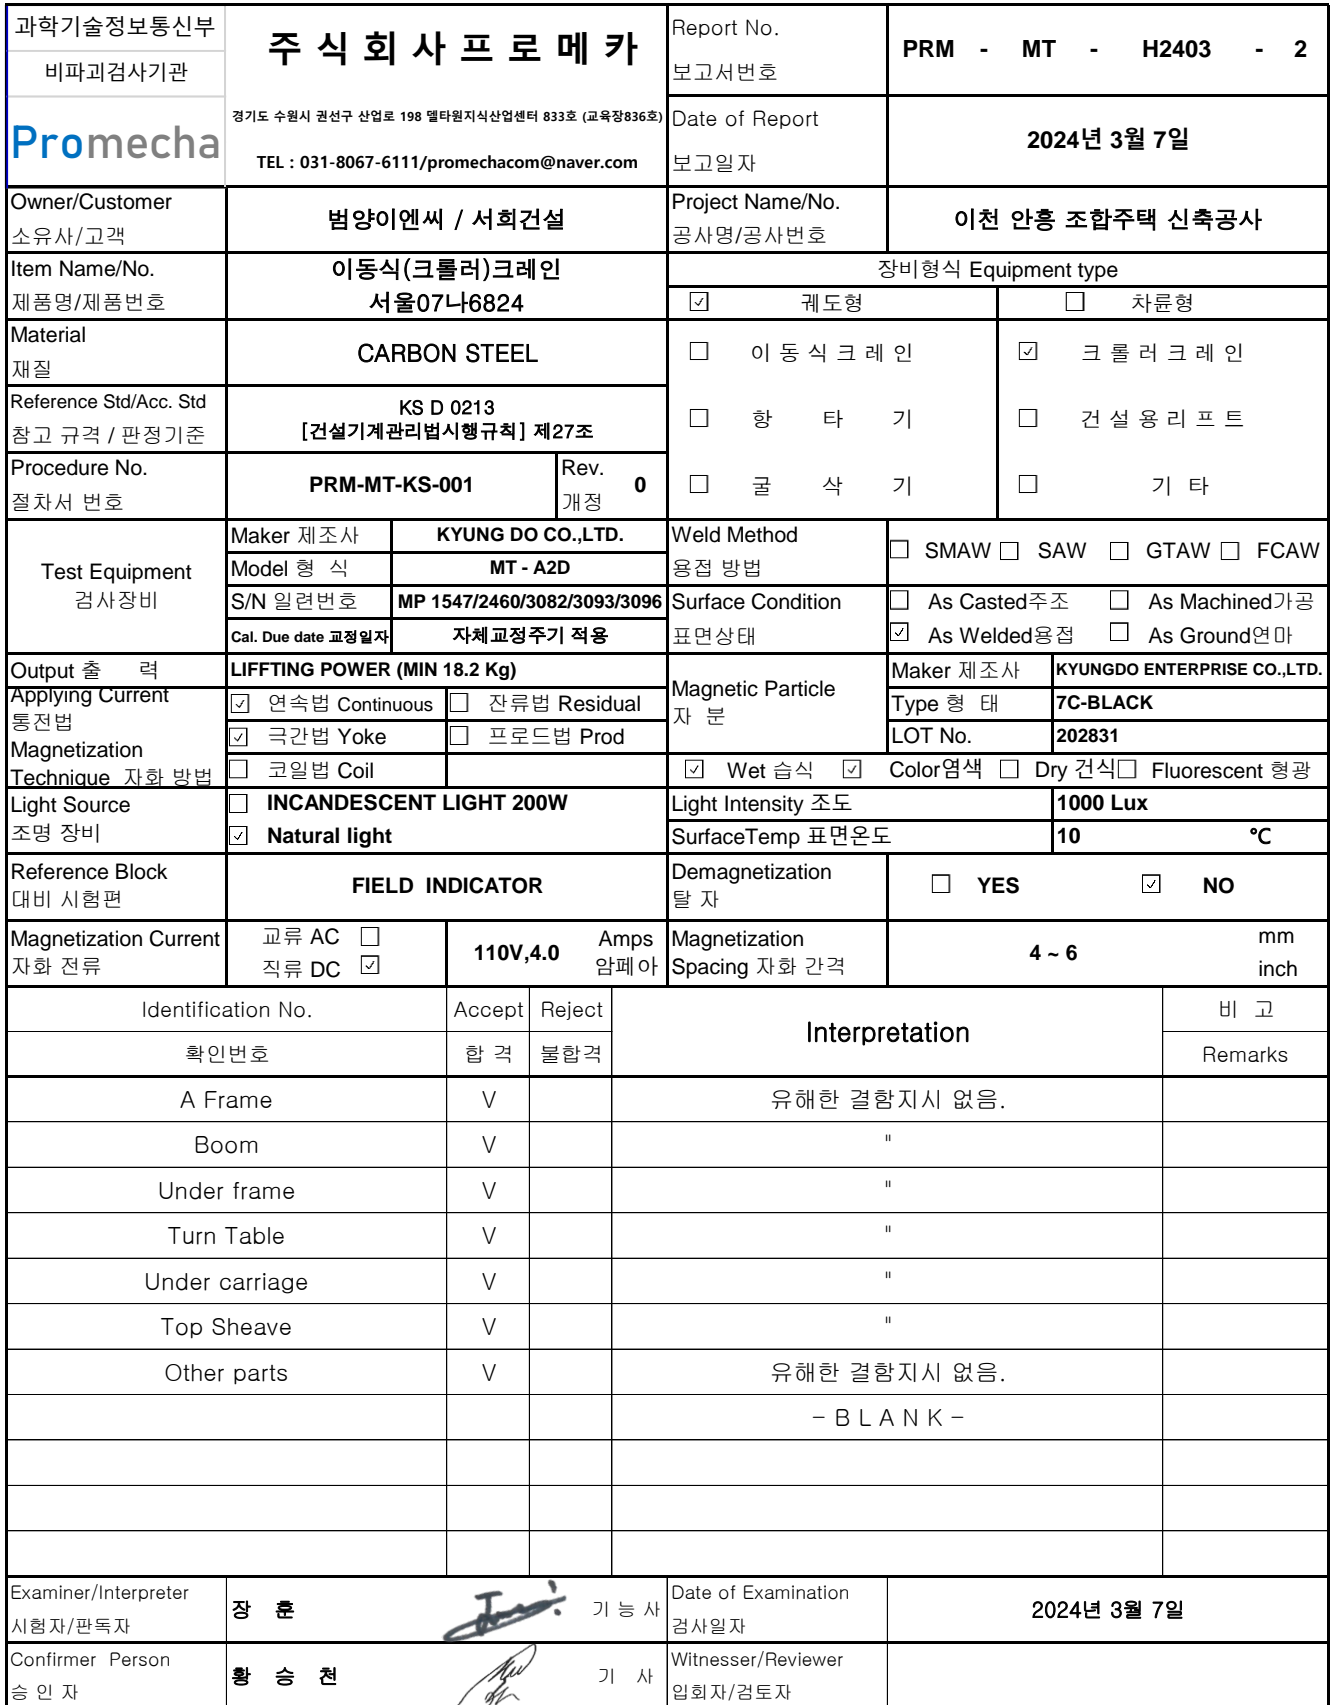 과학기술정보통신부
비파괴검사기관
Promecha
주 식 회 사 프 로 메 카
경기도 수원시 권선구 산업로 198 델타원지식산업센터 833호 (교육장836호)
TEL : 031-8067-6111/promechacom@naver.com
Report No.
보고서번호
PRM - MT - H2403 - 2
Date of Report
보고일자
2024년 3월 7일
Owner/Customer
소유사/고객
범양이엔씨 / 서희건설
Project Name/No.
공사명/공사번호
이천 안흥 조합주택 신축공사
Item Name/No.
제품명/제품번호
이동식(크롤러)크레인
서울07나6824
장비형식 Equipment type
☑ 궤도형 ☐ 차륜형
Material
재질
CARBON STEEL
☐ 이 동 식 크 레 인 ☑ 크 롤 러 크 레 인
Reference Std/Acc. Std
참고 규격 / 판정기준
KS D 0213
[건설기계관리법시행규칙] 제27조
☐ 항 타 기 ☐ 건 설 용 리 프 트
Procedure No.
절차서 번호
PRM-MT-KS-001
Rev.
개정
0
☐ 굴 삭 기 ☐ 기 타
Test Equipment
검사장비
Maker 제조사 KYUNG DO CO.,LTD.
Model 형 식 MT - A2D
S/N 일련번호 MP 1547/2460/3082/3093/3096
Cal. Due date 교정일자 자체교정주기 적용
Weld Method
용접 방법
☐ SMAW ☐ SAW ☐ GTAW ☐ FCAW
Surface Condition
표면상태
☐ As Casted주조 ☐ As Machined가공
☑ As Welded용접 ☐ As Ground연마
Output 출 력 LIFFTING POWER (MIN 18.2 Kg)
Applying Current
통전법
Magnetization
Technique 자화 방법
☑ 연속법 Continuous ☐ 잔류법 Residual
☑ 극간법 Yoke ☐ 프로드법 Prod
☐ 코일법 Coil
Magnetic Particle
자 분
Maker 제조사 KYUNGDO ENTERPRISE CO.,LTD.
Type 형 태 7C-BLACK
LOT No. 202831
☑ Wet 습식 ☑ Color염색 ☐ Dry 건식 ☐ Fluorescent 형광
Light Source
조명 장비
☐ INCANDESCENT LIGHT 200W
☑ Natural light
Light Intensity 조도 1000 Lux
SurfaceTemp 표면온도 10 ℃
Reference Block
대비 시험편
FIELD INDICATOR
Demagnetization
탈 자
☐ YES ☑ NO
Magnetization Current
자화 전류
교류 AC ☐
직류 DC ☑
110V,4.0
Amps
암페아
Magnetization
Spacing 자화 간격
4 ~ 6
mm
inch
Identification No. Accept Reject Interpretation 비 고
확인번호 합 격 불합격 Remarks
A Frame V 유해한 결함지시 없음.
Boom V "
Under frame V "
Turn Table V "
Under carriage V "
Top Sheave V "
Other parts V 유해한 결함지시 없음.
- B L A N K -
Examiner/Interpreter
시험자/판독자
장 훈 기 능 사
Date of Examination
검사일자
2024년 3월 7일
Confirmer Person
승 인 자
황 승 천 기 사
Witnesser/Reviewer
입회자/검토자